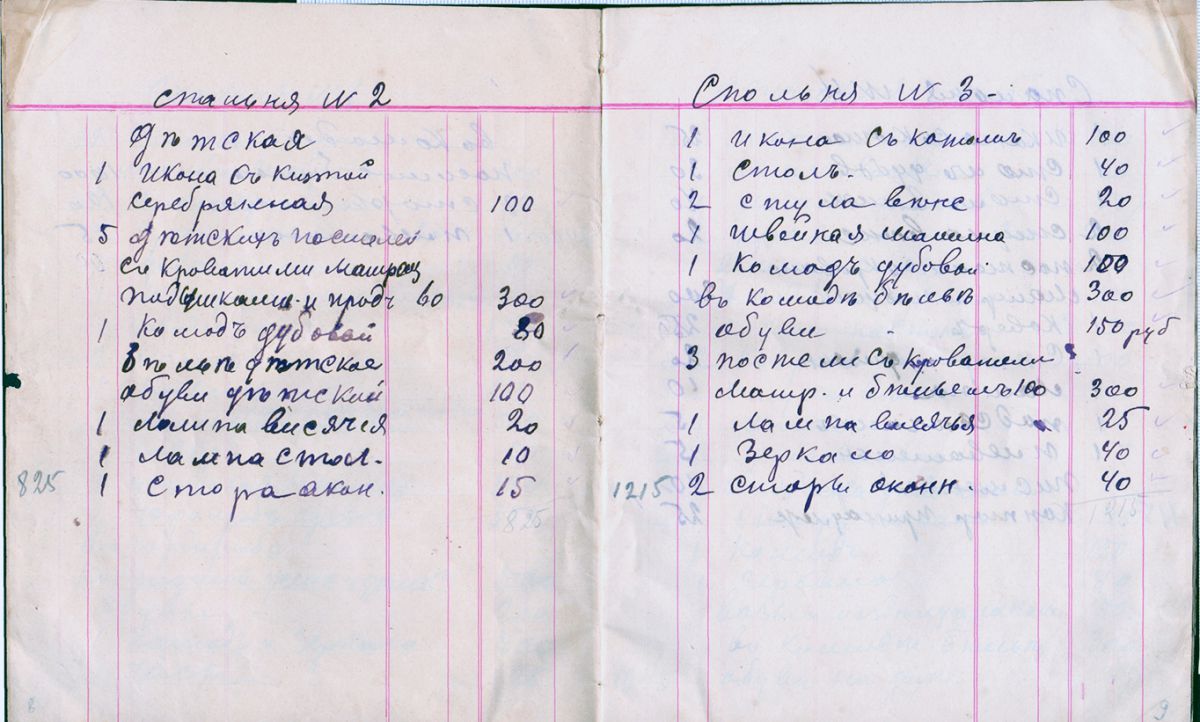 спальня N 2
дѣтская
1 Икона съ кіотой
серебрянная 100
5 дѣтскихъ постелей
съ кроватями матрац
подушками и проч во 300
1 Комодъ дубовой 80
бѣлье дѣтское 200
обуви дѣтской 100
1 Лампа висячея 20
1 Лампа стол. 10
825 1 Стора окон. 15
825
8
Спольня N 3-
1 Икона съ 100
1 столъ. 40
2 стула венс 20
1 швейная машина 100
1 Комодъ дубовой 100
въ комодѣ бѣльѣ 300
обуви 150 руб
3 постели съ кроватями
матр. и бѣльемъ 100 300
1 Лампа висячья 25
1 Зеркало 40
1215 2 сторы оконн. 40
1215
9